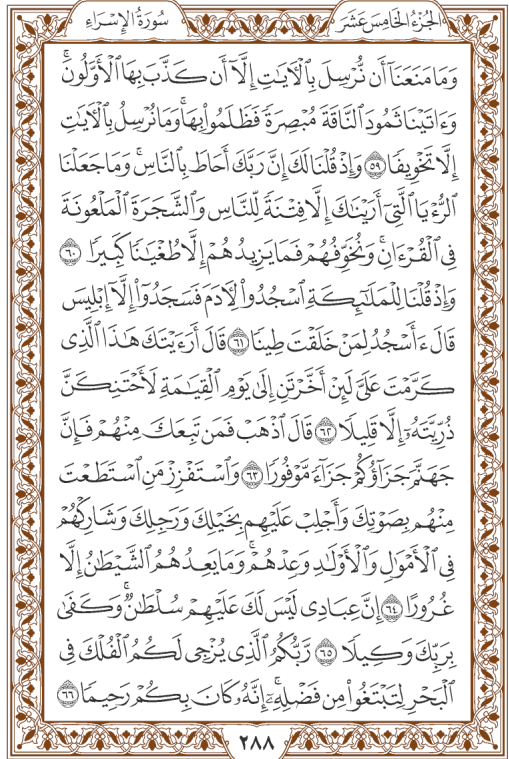 الجُزْءُ الخَامِسَ عَشَرَ
سُورَةُ الإِسْرَاءِ
وَمَا مَنَعَنَآ أَن نُّرْسِلَ بِٱلْءَايَٰتِ إِلَّآ أَن كَذَّبَ بِهَا ٱلْأَوَّلُونَۚ
وَءَاتَيْنَا ثَمُودَ ٱلنَّاقَةَ مُبْصِرَةً فَظَلَمُوا۟ بِهَاۚ وَمَا نُرْسِلُ بِٱلْءَايَٰتِ
إِلَّا تَخْوِيفًا ٥٩ وَإِذْ قُلْنَا لَكَ إِنَّ رَبَّكَ أَحَاطَ بِٱلنَّاسِۚ وَمَا جَعَلْنَا
ٱلرُّءْيَا ٱلَّتِىٓ أَرَيْنَٰكَ إِلَّا فِتْنَةً لِّلنَّاسِ وَٱلشَّجَرَةَ ٱلْمَلْعُونَةَ
فِى ٱلْقُرْءَانِۚ وَنُخَوِّفُهُمْ فَمَا يَزِيدُهُمْ إِلَّا طُغْيَٰنًا كَبِيرًا ٦٠
وَإِذْ قُلْنَا لِلْمَلَٰٓئِكَةِ ٱسْجُدُوا۟ لِءَادَمَ فَسَجَدُوٓا۟ إِلَّآ إِبْلِيسَ
قَالَ ءَأَسْجُدُ لِمَنْ خَلَقْتَ طِينًا ٦١ قَالَ أَرَءَيْتَكَ هَٰذَا ٱلَّذِى
كَرَّمْتَ عَلَىَّ لَئِنْ أَخَّرْتَنِ إِلَىٰ يَوْمِ ٱلْقِيَٰمَةِ لَأَحْتَنِكَنَّ
ذُرِّيَّتَهُۥٓ إِلَّا قَلِيلًا ٦٢ قَالَ ٱذْهَبْ فَمَن تَبِعَكَ مِنْهُمْ فَإِنَّ
جَهَنَّمَ جَزَآؤُكُمْ جَزَآءً مَّوْفُورًا ٦٣ وَٱسْتَفْزِزْ مَنِ ٱسْتَطَعْتَ
مِنْهُم بِصَوْتِكَ وَأَجْلِبْ عَلَيْهِم بِخَيْلِكَ وَرَجِلِكَ وَشَارِكْهُمْ
فِى ٱلْأَمْوَٰلِ وَٱلْأَوْلَٰدِ وَعِدْهُمْۚ وَمَا يَعِدُهُمُ ٱلشَّيْطَٰنُ إِلَّا
غُرُورًا ٦٤ إِنَّ عِبَادِى لَيْسَ لَكَ عَلَيْهِمْ سُلْطَٰنٌۚ وَكَفَىٰ
بِرَبِّكَ وَكِيلًا ٦٥ رَّبُّكُمُ ٱلَّذِى يُزْجِى لَكُمُ ٱلْفُلْكَ فِى
ٱلْبَحْرِ لِتَبْتَغُوا۟ مِن فَضْلِهِۦٓۚ إِنَّهُۥ كَانَ بِكُمْ رَحِيمًا ٦٦
٢٨٨